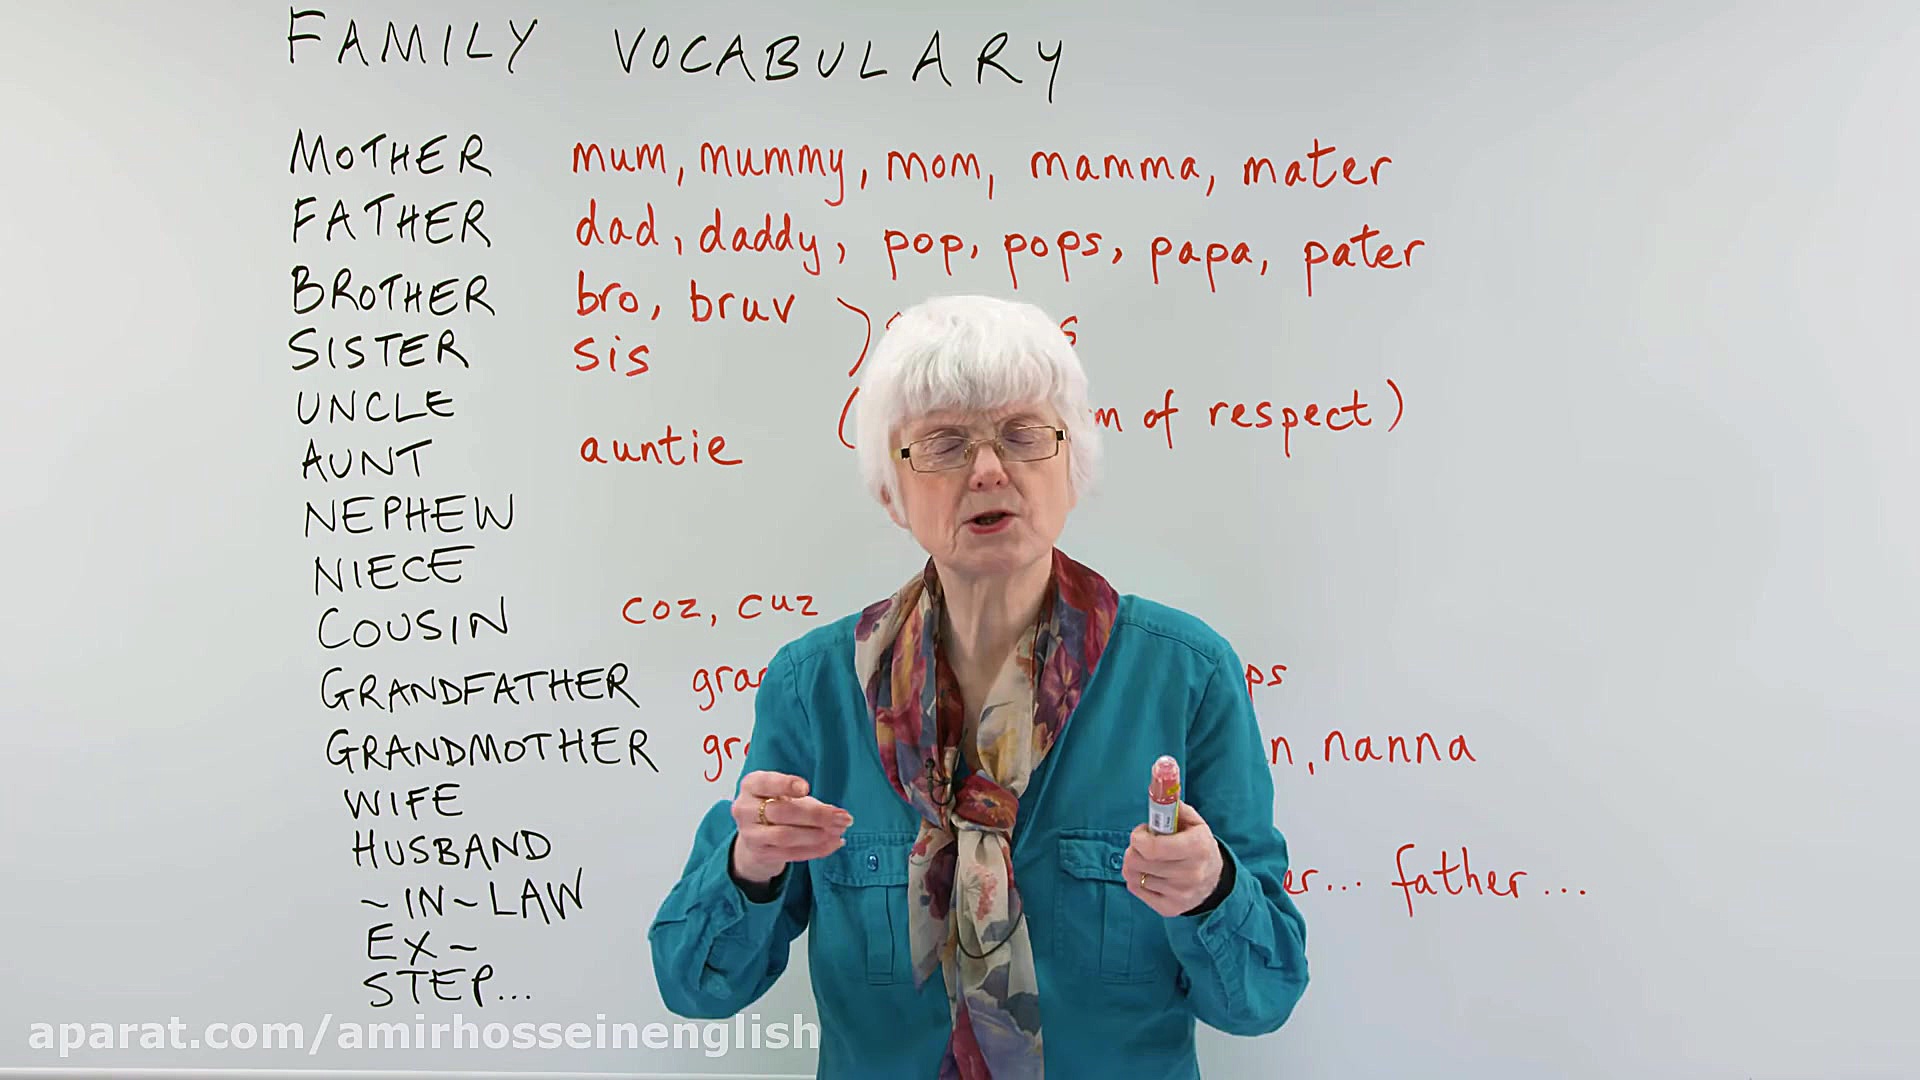 FAMILY VOCABULARY
MOTHER mum, mummy, mom, mamma, mater
FATHER dad, daddy, pop, pops, papa, pater
BROTHER bro, bruv
SISTER sis
UNCLE of respect)
AUNT auntie
NEPHEW
NIECE
COUSIN coz, cuz
GRANDFATHER
GRANDMOTHER nanna
WIFE
HUSBAND
~IN~LAW father...
EX~
STEP...
aparat.com/amirhosseinenglish